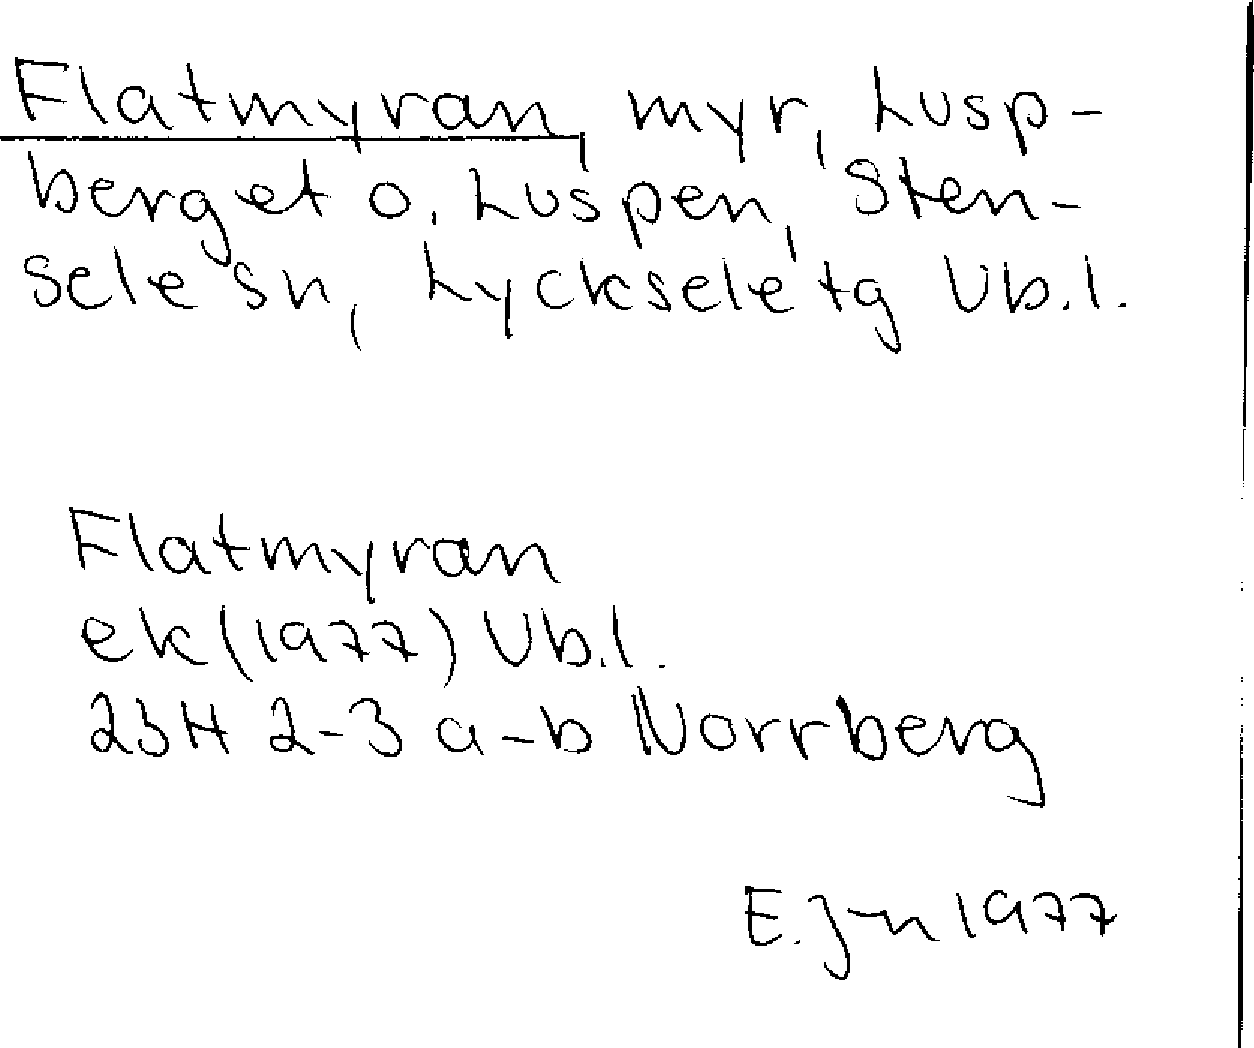 Flatmyran, myr, Lusp-
berget o. Luspen, Sten-
sele sn, Lycksele tg Vb.l.
Flatmyran
ek (1977) Vb.l.
23H 2-3 a-b Norrberg
E. J-n 1977